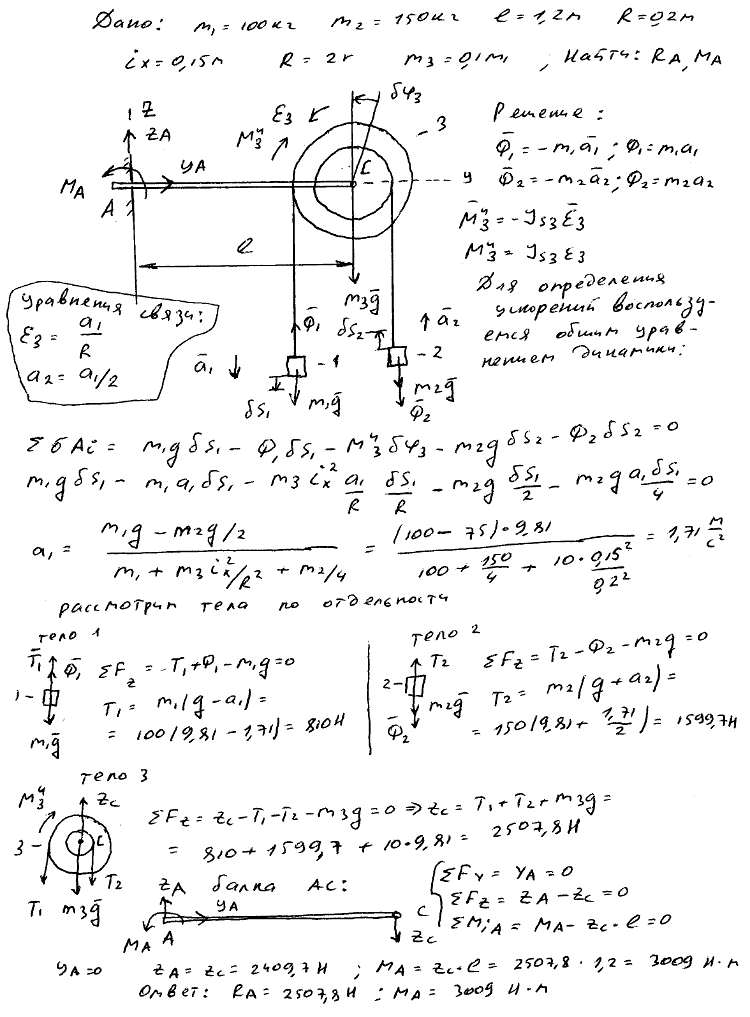 Дано: m₁=100кг m₂=150кг ℓ=1,2м R=0,2м
iх=0,15м R=2r m₃=0,1m₁ , Найти: RA, MA
Z
ZA
MA
A
YA
ε₃
M₃ᵘ
δφ₃
3
C
y
ℓ
m₃g̅
Решение:
Φ̅₁=-m₁a̅₁; Φ₁=m₁a₁
Φ̅₂=-m₂a̅₂; Φ₂=m₂a₂
M̅₃ᵘ=-Js₃ε̅₃
M₃ᵘ=Js₃ε₃
Для определения
ускорений воспользу-
емся общим урав-
нением динамики:
Уравнения связи:
ε₃ = a₁/R
a₂ = a₁/2
a̅₁
Φ̅₁
- 1
δS₁
m₁g̅
δS₂
a̅₂
- 2
m₂g̅
Φ̅₂
ΣδAi = m₁gδS₁ - Φ₁δS₁ - M₃ᵘδφ₃ - m₂gδS₂ - Φ₂δS₂ = 0
m₁gδS₁ - m₁a₁δS₁ - m₃iх² a₁/R δS₁/R - m₂g δS₁/2 - m₂g a₁δS₁/4 = 0
a₁ = (m₁g - m₂g/2)/(m₁ + m₃iх²/R² + m₂/4) = (100-75)·9,81/(100 + 150/4 + 10·0,15²/0,2²) = 1,71 м/с²
рассмотрим тела по отдельности
тело 1
T̅₁ Φ̅₁
1-
m₁g̅
ΣFz = -T₁+Φ₁-m₁g=0
T₁ = m₁(g-a₁)=
= 100(9,81-1,71)=810Н
тело 2
T₂
2-
m₂g̅
Φ̅₂
ΣFz = T₂-Φ₂-m₂g=0
T₂ = m₂(g+a₂)=
= 150(9,81+ 1,71/2)= 1599,7Н
тело 3
M₃ᵘ
Zc
C
3-
T₁ m₃g̅ T₂
ΣFz = Zc-T₁-T₂-m₃g=0 ⇒ Zc = T₁+T₂+m₃g=
= 810+1599,7+10·9,81= 2507,8Н
балка AC:
ZA
YA
MA A
C
Zc
ΣFy = YA = 0
ΣFz = ZA-Zc=0
ΣMiA = MA-Zc·ℓ=0
YA=0 ZA=Zc=2409,7Н ; MA=Zc·ℓ = 2507,8·1,2 = 3009 Н·м
Ответ: RA=2507,8Н ; MA=3009 Н·м